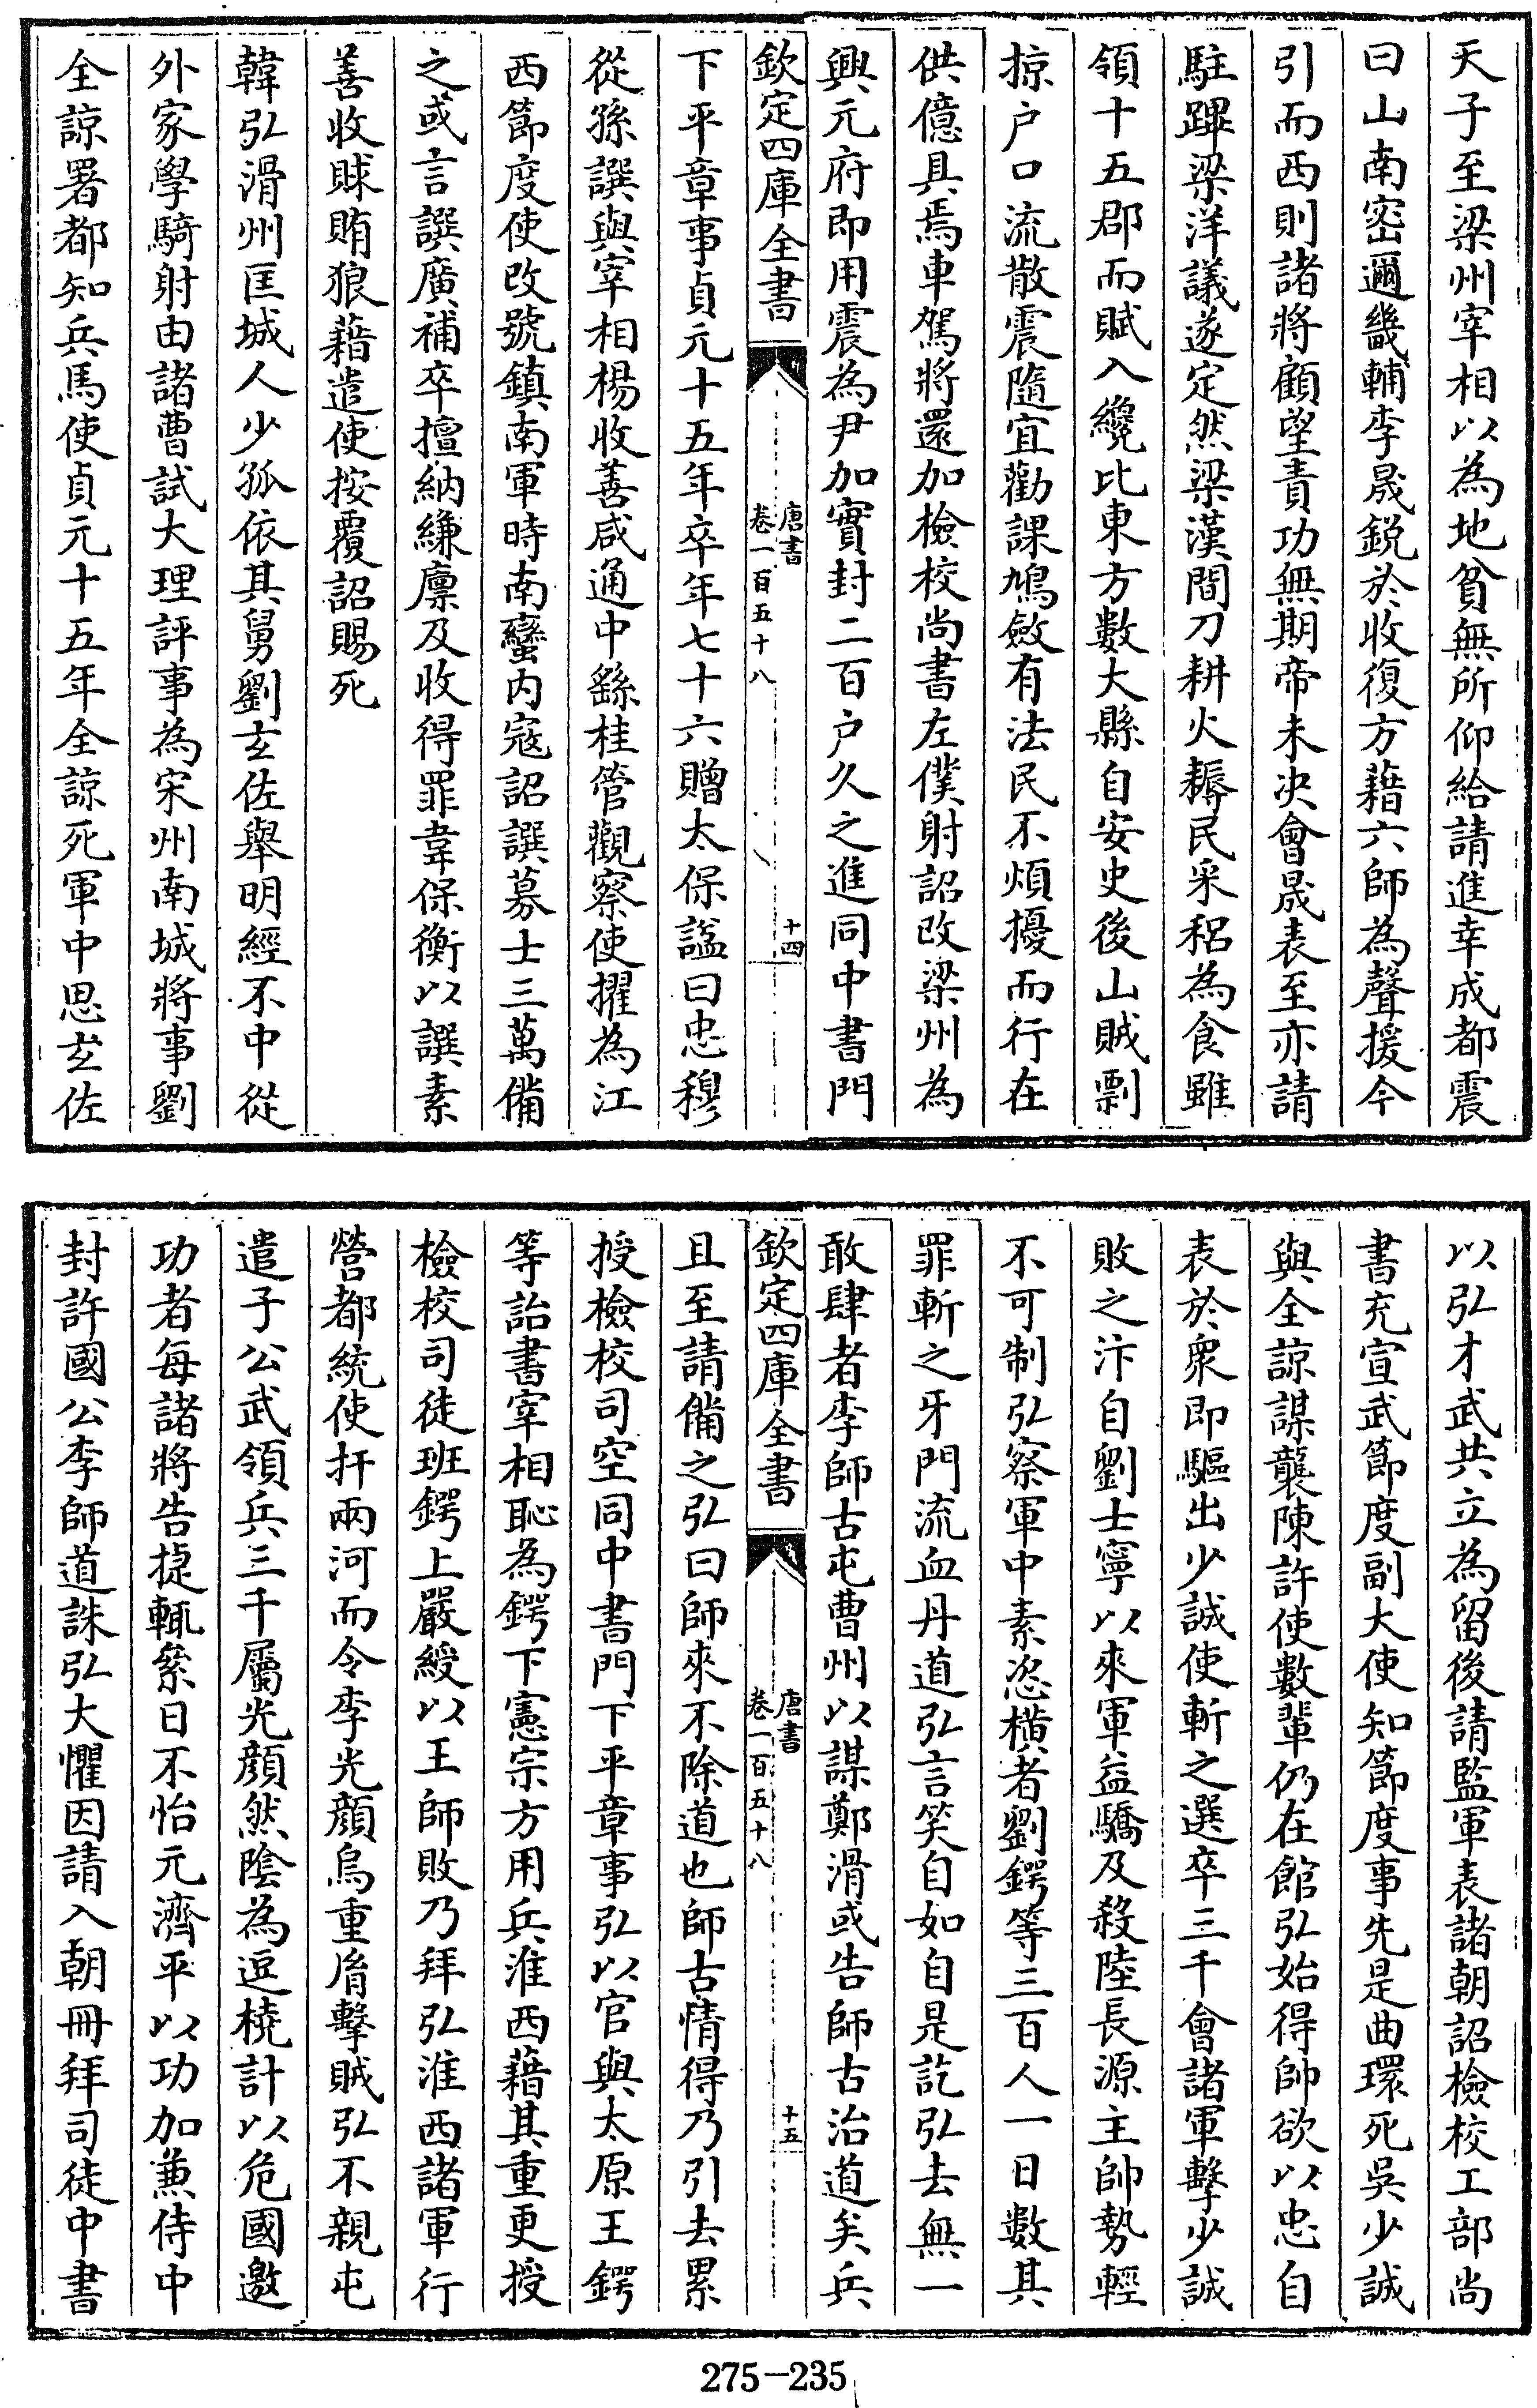 天子至梁州宰相以為地貧無所仰給請進幸成都震
曰山南密邇畿輔李晟鋭於收復方藉六師為聲援今
引而西則諸將顧望責功無期帝未決會晟表至亦請
駐蹕梁洋議遂定然梁漢間刀耕火耨民采稆為食雖
領十五郡而賦入纔比東方數大縣自安史後山賊剽
掠户口流散震隨宜勸課鳩斂有法民不煩擾而行在
供億具焉車駕將還加檢校尚書左僕射詔改梁州為
興元府即用震為尹加實封二百户久之進同中書門
欽定四庫全書
唐書
卷一百五十八
十四
下平章事貞元十五年卒年七十六贈太保諡曰忠穆
從孫譔與宰相楊收善咸通中繇桂管觀察使擢為江
西節度使改號鎮南軍時南蠻内寇詔譔募士三萬備
之或言譔廣補卒擅納縑廪及收得罪韋保衡以譔素
善收賕賄狼藉遣使按覆詔賜死
韓弘滑州匡城人少孤依其舅劉玄佐舉明經不中從
外家學騎射由諸曹試大理評事為宋州南城將事劉
全諒署都知兵馬使貞元十五年全諒死軍中思玄佐
以弘才武共立為留後請監軍表諸朝詔檢校工部尚
書充宣武節度副大使知節度事先是曲環死吳少誠
與全諒謀襲陳許使數輩仍在館弘始得帥欲以忠自
表於衆即驅出少誠使斬之選卒三千會諸軍擊少誠
敗之汴自劉士寧以來軍益驕及殺陸長源主帥勢輕
不可制弘察軍中素恣横者劉鍔等三百人一日數其
罪斬之牙門流血丹道弘言笑自如自是訖弘去無一
敢肆者李師古屯曹州以謀鄭滑或告師古治道矣兵
欽定四庫全書
唐書
卷一百五十八
十五
且至請備之弘曰師來不除道也師古情得乃引去累
授檢校司空同中書門下平章事弘以官與太原王鍔
等詒書宰相恥為鍔下憲宗方用兵淮西藉其重更授
檢校司徒班鍔上嚴綬以王師敗乃拜弘淮西諸軍行
營都統使扞兩河而令李光顔烏重胤擊賊弘不親屯
遣子公武領兵三千屬光顔然陰為逗橈計以危國邀
功者每諸將告捷輒絫日不怡元濟平以功加兼侍中
封許國公李師道誅弘大懼因請入朝冊拜司徒中書
275-235